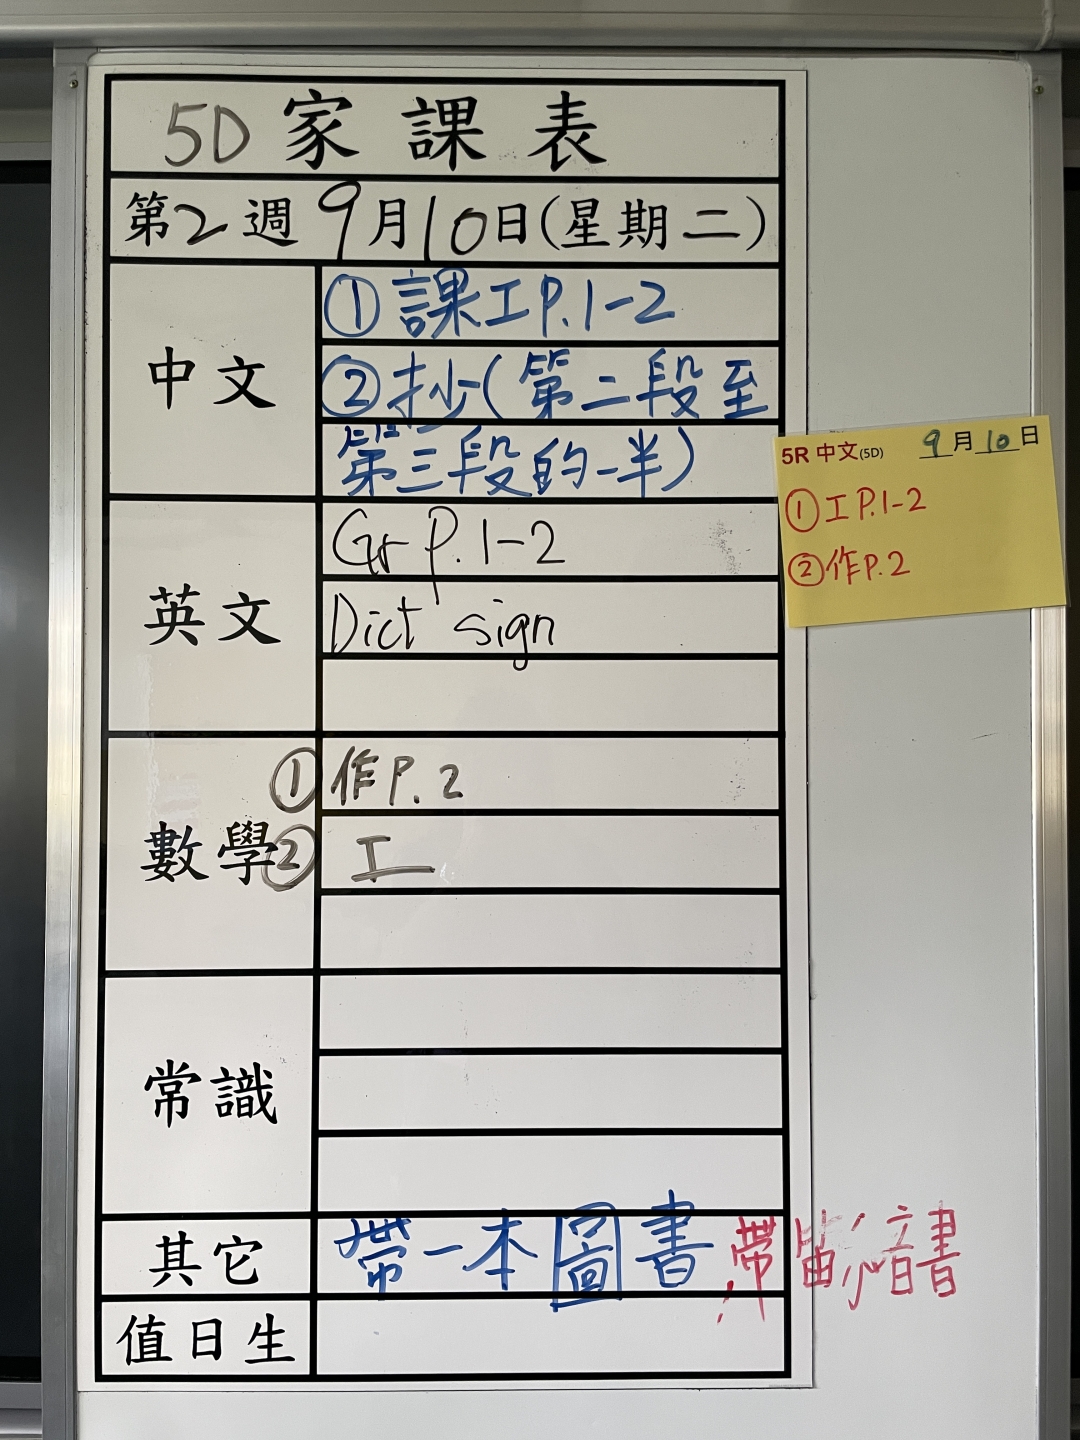 5D 家課表
第2週 9月10日(星期二)
中文
①課工P.1-2
②抄(第二段至
第三段的一半)
英文
Gr P.1-2
Dict sign
數學
①作P.2
②工
常識
其它
帶一本圖書
帶笛 音書
值日生
5R 中文(5D) 9月10日
①工P.1-2
②作P.2